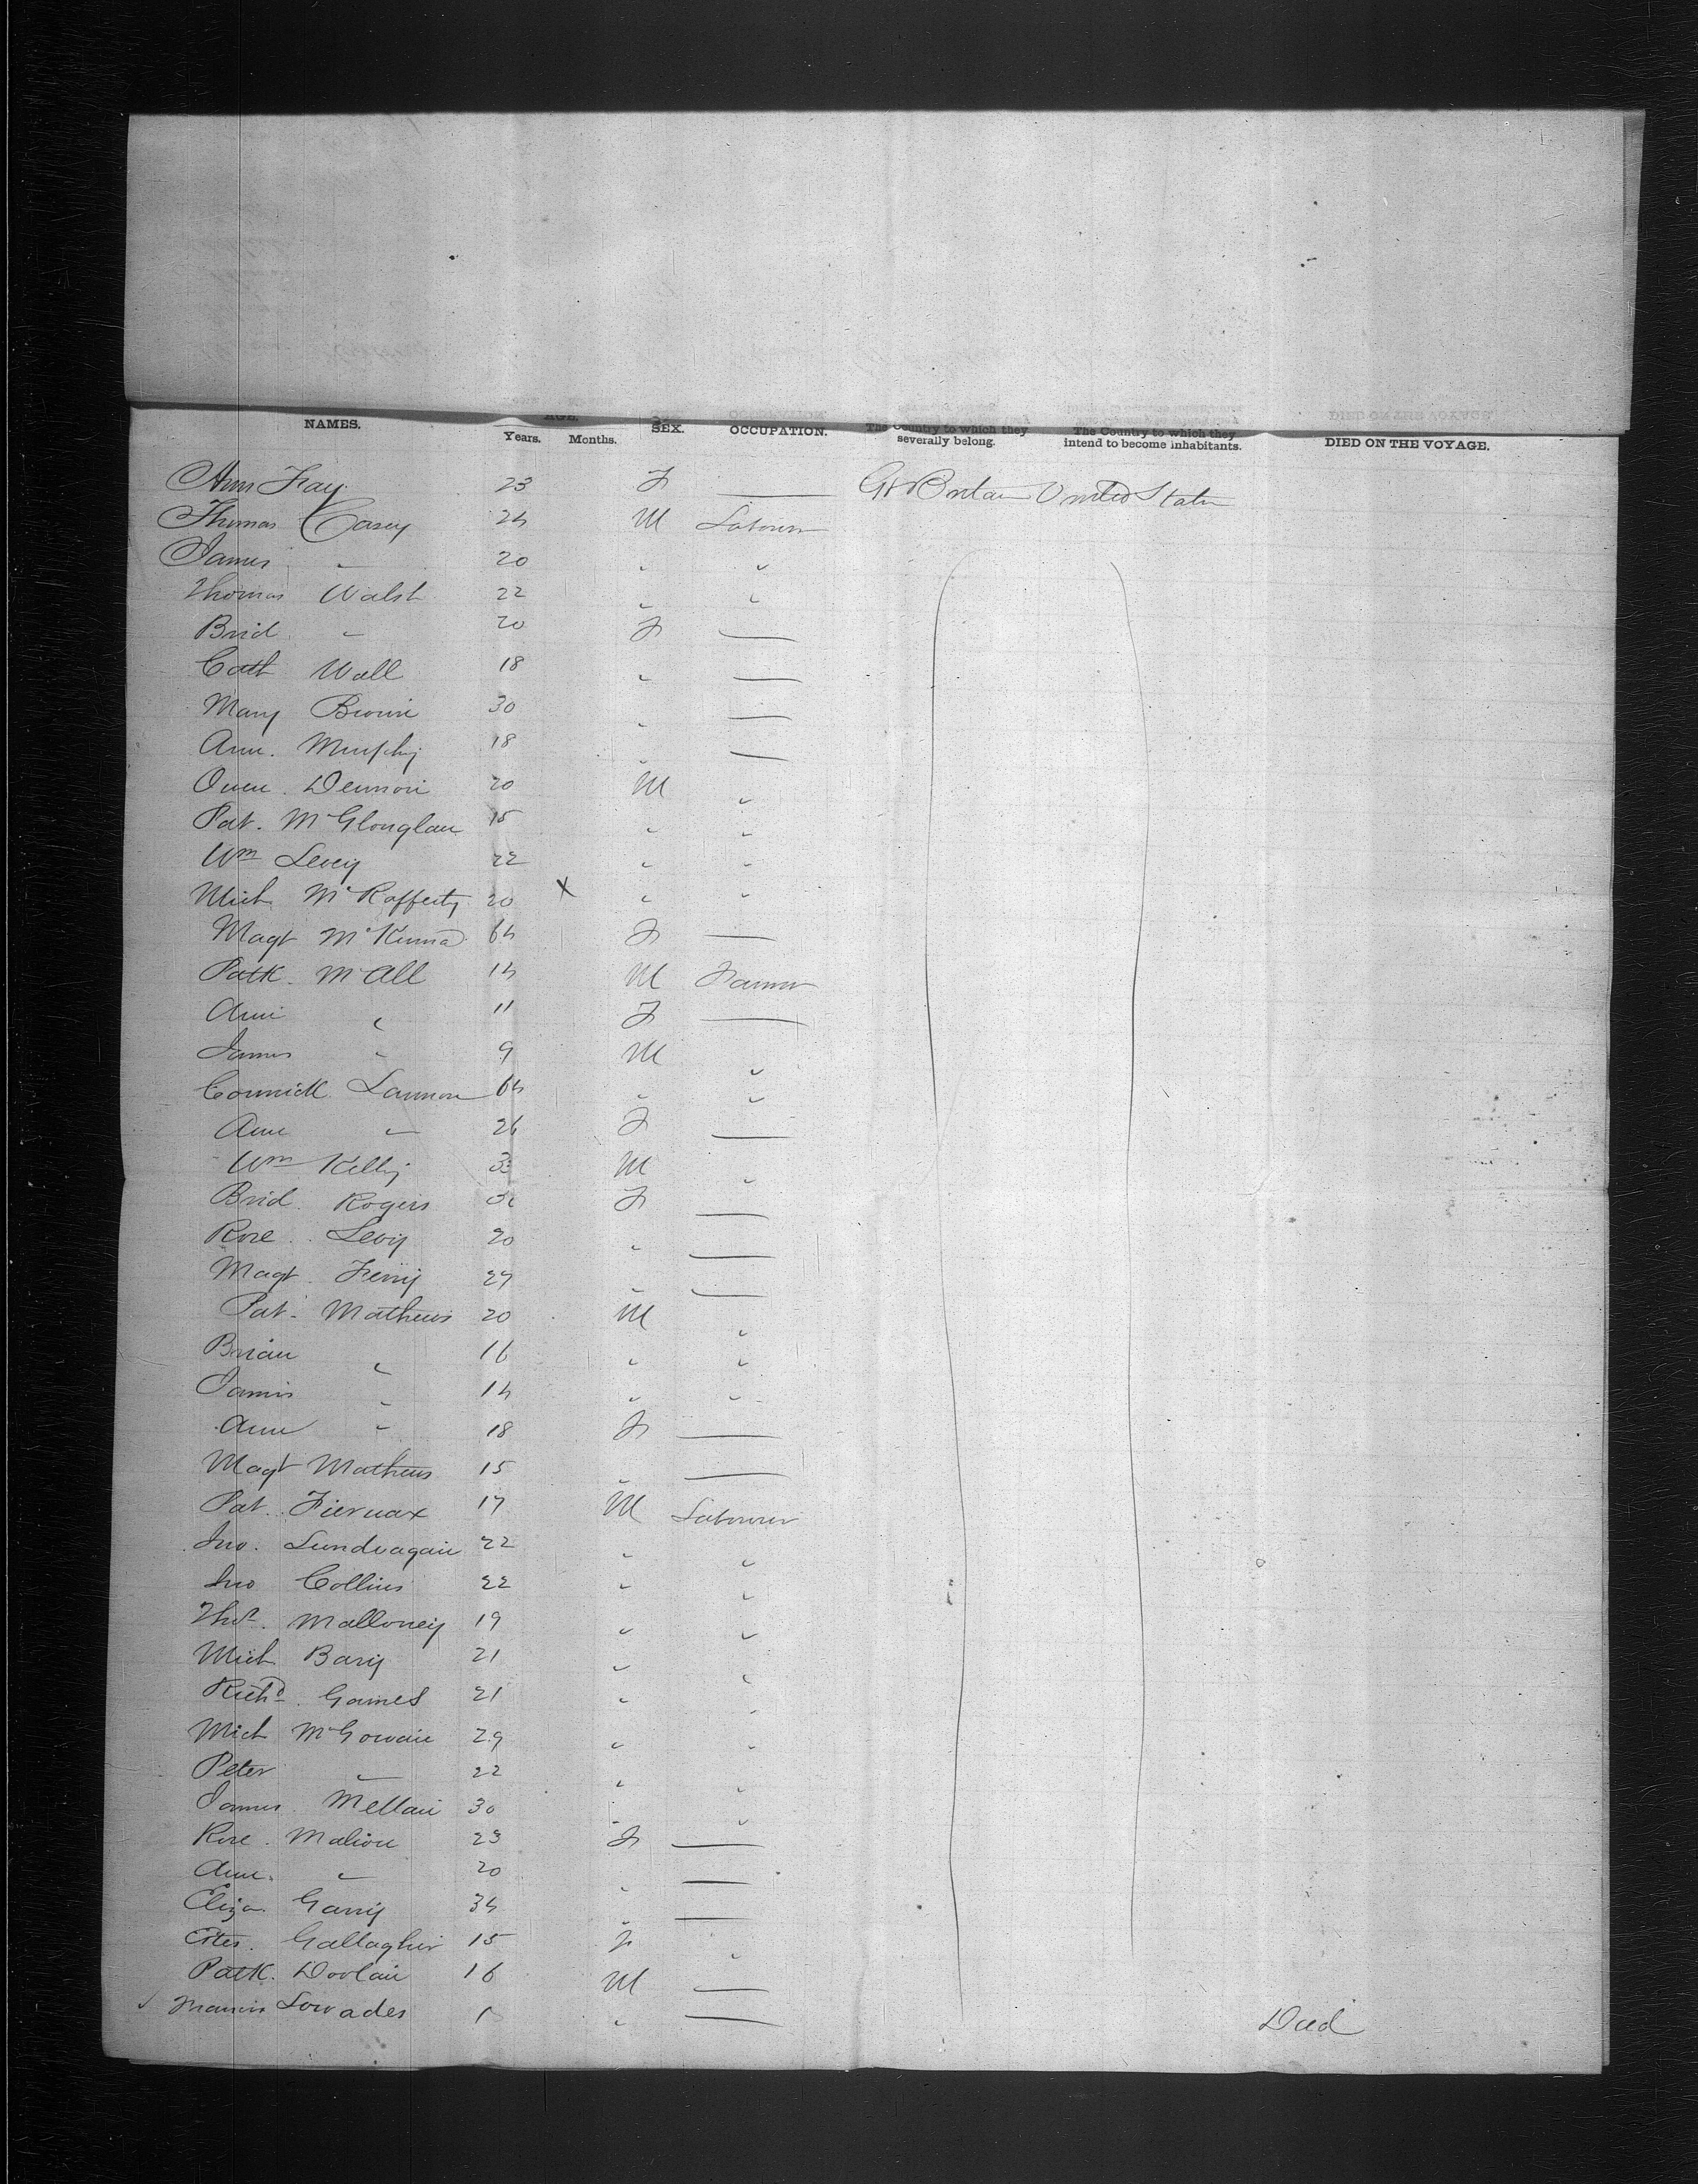 NAMES. AGE. Years. Months. SEX. OCCUPATION. The Country to which they severally belong. The Country to which they intend to become inhabitants. DIED ON THE VOYAGE.
Ann Fay 23 F — Gt Britain United States
Thomas Casey 24 M Labourer
James " 20 " "
Thomas Walsh 22 " "
Brid " 20 F —
Cath Wall 18 " —
Mary Brown 30 " —
Ann Murphy 18 " —
Owen Dennon 20 M "
Pat. McGlonglan 15 " "
Wm Levy 22 " "
Mich McRafferty 20 X " "
Magt McKenna 64 F —
Patk. McAll 14 M Farmer
Ann " 11 F —
James " 9 M "
Connick Lannon 64 " "
Ann " 26 F —
Wm Kelly M "
Brid Rogers F —
Rose Levy 20 " —
Magt. Ferry 27 " —
Pat. Mathews 20 M "
Brian " 16 " "
James " 14 " "
Ann " 18 F —
Magt Mathews 15 " —
Pat. 17 M Labourer
Jno. 22 " "
Jno Collins 22 " "
Thos. Malloney 19 " "
Mich Bary 21 " "
Richd. Games 21 " "
Mich McGowan 29 " "
Peter " 22 " "
James Mellan 30 " "
Rose Malion 23 F —
Ann. " 20 " —
Eliza. Garry 34 " —
Gallagher 15 F "
Patk. Doolan 16 M —
Lowades 1 " — Died